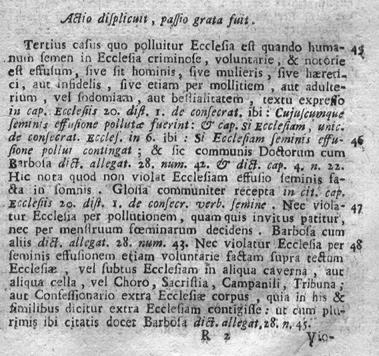 Actio displicuit, passio grata fuit.
Tertius casus quo polluitur Ecclesia est quando huma- 45
num semen in Ecclesia criminose, voluntarie, & notorie
est effusum, sive sit hominis, sive mulieris, sive hæreti-
ci, aut infidelis, sive etiam per mollitiem, aut adulte-
rium, vel sodomiam, aut bestialitatem, textu expresso
in cap. Ecclesiis 20. dist. 1. de consecrat. ibi: Cujuscumque
seminis effusione pollutæ fuerint: & cap. Si Ecclesiam, unic.
de consecrat. Eccles. in 6. ibi: Si Ecclesiam seminis effu- 46
sione pollui contingat: & sic communis Doctorum cum
Barbosa dict. allegat. 28. num. 42. & dict. cap. 4. n. 22.
Hic nota quod non violat Ecclesiam effusio seminis fa-
cta in somnis. Glossa communiter recepta in cit. cap.
Ecclesiis 20. dist. 1. de consecr. verb. semine. Nec viola- 47
tur Ecclesia per pollutionem, quam quis invitus patitur,
nec per menstruum fœminarum decidens. Barbosa cum
aliis dict. allegat. 28. num. 43. Nec violatur Ecclesia per 48
seminis effusionem etiam voluntarie factam supra tectum
Ecclesiæ, vel subtus Ecclesiam in aliqua caverna, aut
aliqua cella, vel Choro, Sacristia, Campanili, Tribuna;
aut Confessionario extra Ecclesiæ corpus, quia in his &
similibus dicitur extra Ecclesiam contigisse: ut cum plu-
rimis ibi citatis docet Barbosa dict. allegat. 28. n. 45.
R 2 Vio-